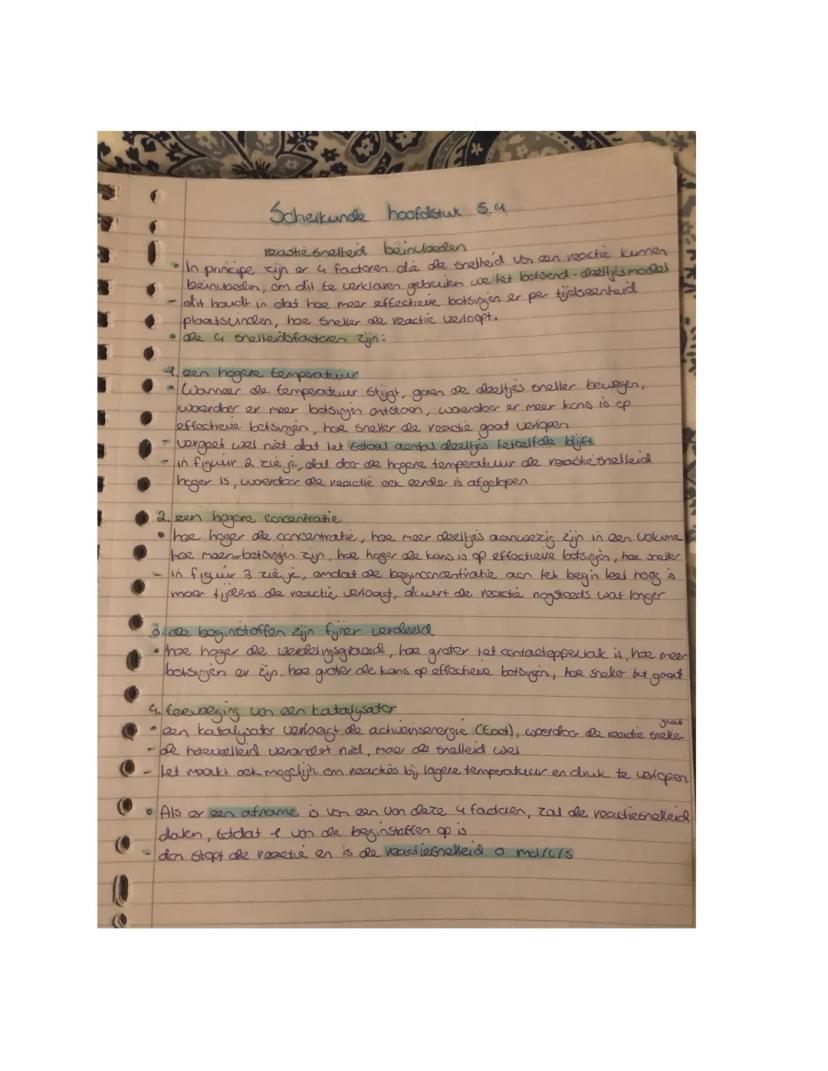 Scheikunde hoofdstuk 5.4
reactiesnelheid beïnvloeden
• In principe zijn er 4 factoren die de snelheid van een reactie kunnen
beïnvloeden, om dit te verklaren gebruiken we het botsend-deeltjesmodel
- dit houdt in dat hoe meer effectieve botsingen er per tijdseenheid
plaatsvinden, hoe sneller de reactie verloopt.
• de 4 snelheidsfactoren zijn:
1. een hogere temperatuur
• Wanneer de temperatuur stijgt, gaan de deeltjes sneller bewegen,
waardoor er meer botsingen ontstaan, waardoor er meer kans is op
effectieve botsingen, hoe sneller de reactie gaat verlopen
- vergeet wel niet dat het totaal aantal deeltjes hetzelfde blijft
- in figuur 2 zie je, dat door de hogere temperatuur de reactiesnelheid
hoger is, waardoor de reactie ook eerder is afgelopen
2. een hogere concentratie
• hoe hoger de concentratie, hoe meer deeltjes aanwezig zijn in een volume
hoe meer botsingen zijn, hoe hoger de kans is op effectieve botsingen, hoe sneller
- in figuur 3 zie je, omdat de beginconcentratie aan het begin heel hoog is
maar tijdens de reactie verlaagt, duurt de reactie nogsteeds wat langer
3. de beginstoffen zijn fijner verdeeld
• hoe hoger de verdelingsgraad, hoe groter het contactoppervlak is, hoe meer
botsingen er zijn, hoe groter de kans op effectieve botsingen, hoe sneller het gaat
4. toevoeging van een katalysator
• een katalysator verlaagt de activeringsenergie (Eact), waardoor de reactie sneller gaat
- de hoeveelheid verandert niet, maar de snelheid wel
- het maakt ook mogelijk om reacties bij lagere temperatuur en druk te verlopen
• Als er een afname is van een van deze 4 factoren, zal de reactiesnelheid
dalen, totdat 1 van de beginstoffen op is
- dan stopt de reactie en is de reactiesnelheid 0 mol/L/s